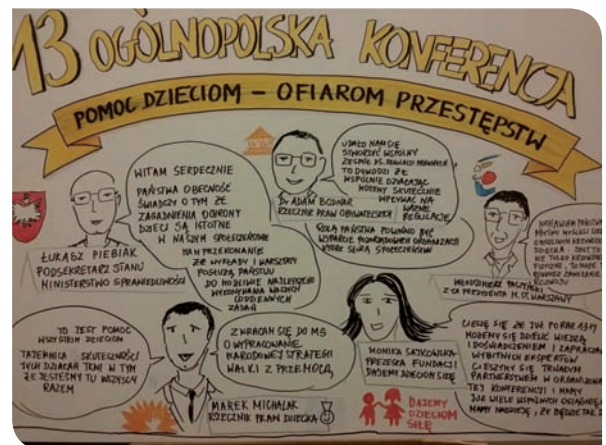 13 OGÓLNOPOLSKA KONFERENCJA
POMOC DZIECIOM – OFIAROM PRZESTĘPSTW
WITAM SERDECZNIE
PAŃSTWA OBECNOŚĆ
ŚWIADCZY O TYM ŻE
ZAGADNIENIA OCHRONY
DZIECI SĄ ISTOTNE
W NASZYM SPOŁECZEŃSTWIE
MAM PRZEKONANIE
ŻE WYKŁADY I WARSZTATY
POSŁUŻĄ PAŃSTWU
DO MOŻLIWIE NAJLEPSZEGO
WYKONYWANIA WASZYCH
CODZIENNYCH
ZADAŃ
ŁUKASZ PIEBIAK
PODSEKRETARZ STANU
MINISTERSTWO SPRAWIEDLIWOŚCI
UDAŁO NAM SIĘ
STWORZYĆ WSPÓLNY
ZESPÓŁ DS.
TO DOWODZI ŻE
WSPÓLNIE DZIAŁAJĄC
MOŻEMY SKUTECZNIE
WPŁYWAĆ NA
WAŻNE
REGULACJE
ROLĄ PAŃSTWA POWINNO BYĆ
WSPARCIE POZARZĄDOWYCH ORGANIZACJI
KTÓRE SŁUŻĄ SPOŁECZEŃSTWU
Dr ADAM BODNAR
RZECZNIK PRAW OBYWATELSKICH
WŁODZIMIERZ PASZYŃSKI
Z-CA PREZYDENTA M. ST. WARSZAWY
TO JEST POMOC
WSZYSTKIM DZIECIOM
TAJEMNICA SKUTECZNOŚCI
TYCH DZIAŁAŃ TKWI W TYM
ŻE JESTEŚMY TU WSZYSCY
RAZEM
ZWRACAM SIĘ DO MS
O WYPRACOWANIE
NARODOWEJ STRATEGII
WALKI Z PRZEMOCĄ
MAREK MICHALAK
RZECZNIK PRAW DZIECKA
MONIKA SAJKOWSKA
PREZESKA FUNDACJI
DAJEMY DZIECIOM SIŁĘ
DAJEMY
DZIECIOM
SIŁĘ
CIESZĘ SIĘ ŻE JUŻ PO RAZ 13-TY
MOŻEMY SIĘ DZIELIĆ WIEDZĄ
I DOŚWIADCZENIEM I ZAPRASZAĆ
WYBITNYCH EKSPERTÓW
CIESZYMY SIĘ TRWAŁYM
PARTNERSTWEM W ORGANIZOWANIU
TEJ KONFERENCJI I MAMY
JUŻ WIELE WSPÓLNYCH OSIĄGNIĘĆ
MAMY NADZIEJĘ, ŻE BĘDZIE TAK